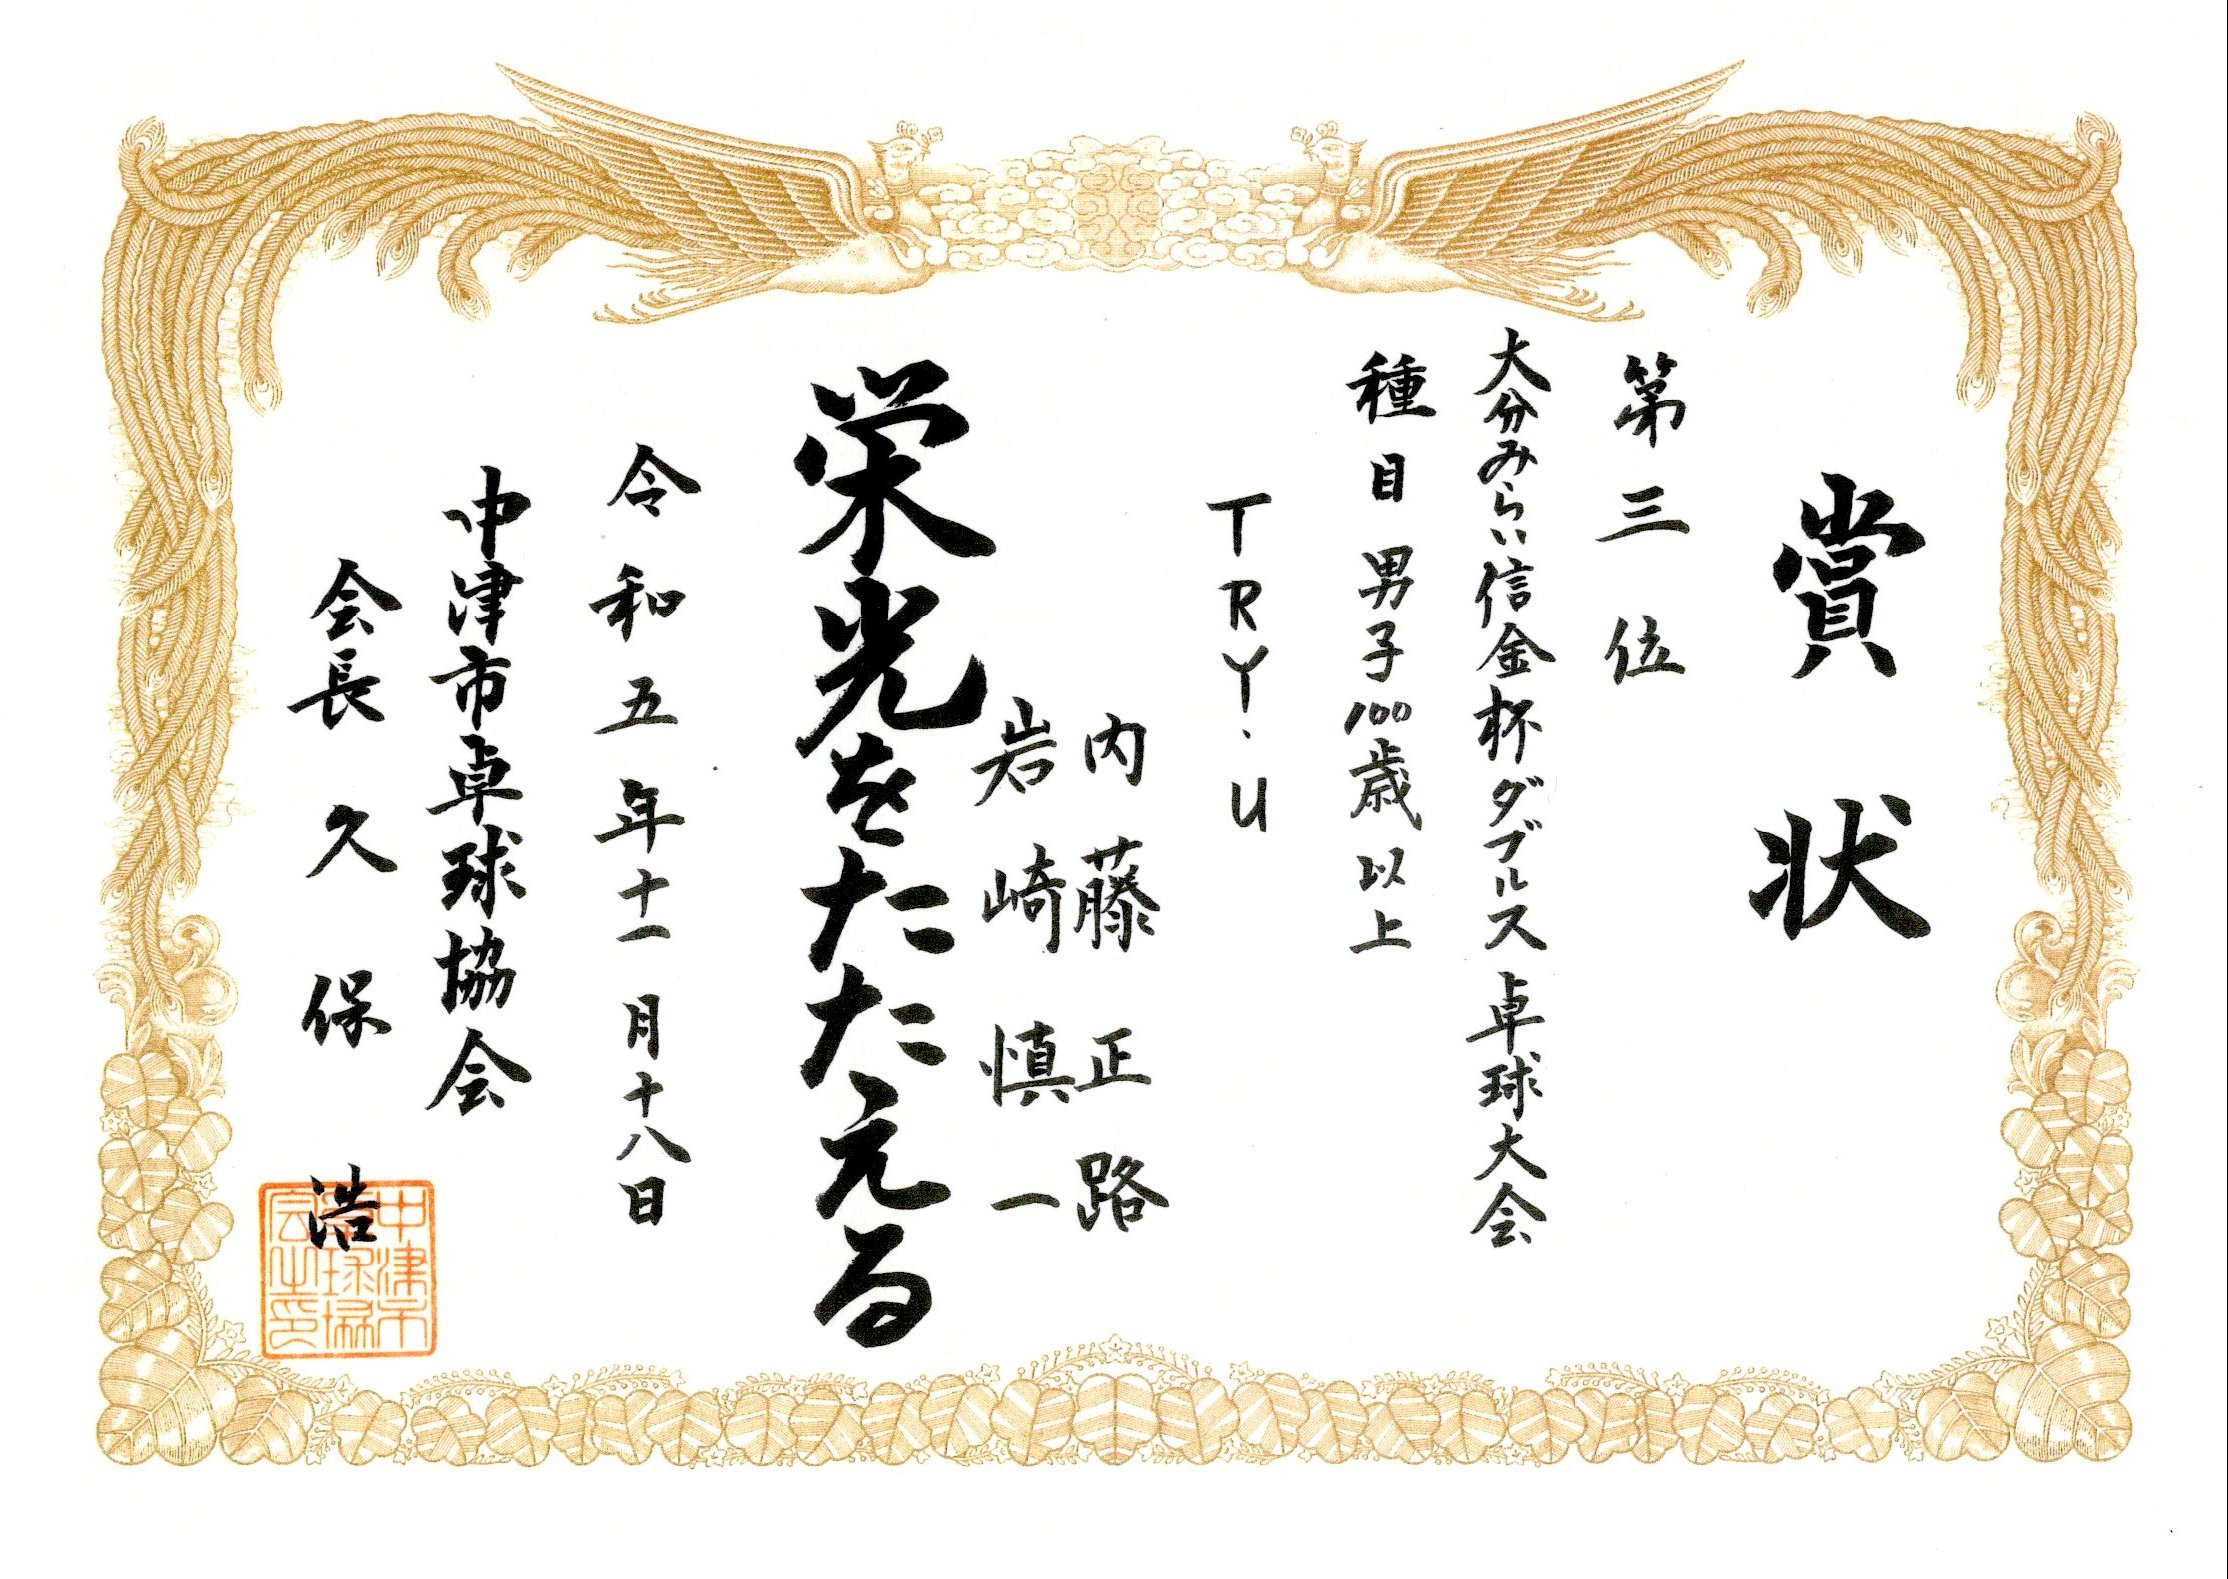 賞状
第三位
大分みらい信金杯ダブルス卓球大会
種目 男子100歳以上
TRY・U
内藤正路
岩崎慎一
栄光をたたえる
令和五年十一月十八日
中津市卓球協会
会長 久保 浩
中津市
卓球協
会之印